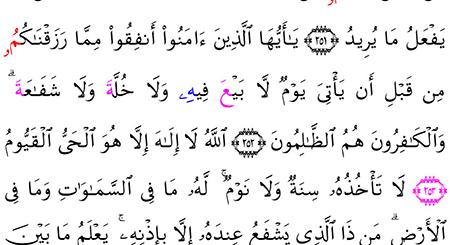 يَفْعَلُ مَا يُرِيدُ ﴿٢٥١﴾ يَـٰٓأَيُّهَا ٱلَّذِينَ ءَامَنُوٓا۟ أَنفِقُوا۟ مِمَّا رَزَقْنَـٰكُمُۥ
مِن قَبْلِ أَن يَأْتِىَ يَوْمٌ لَّا بَيْعَ فِيهِۦ وَلَا خُلَّةَ وَلَا شَفَـٰعَةَ ۗ
وَٱلْكَـٰفِرُونَ هُمُ ٱلظَّـٰلِمُونَ ﴿٢٥٢﴾ ٱللَّهُ لَآ إِلَـٰهَ إِلَّا هُوَ ٱلْحَىُّ ٱلْقَيُّومُ
﴿٢٥٣﴾ لَا تَأْخُذُهُۥ سِنَةٌ وَلَا نَوْمٌ ۚ لَهُۥ مَا فِى ٱلسَّمَـٰوَٰتِ وَمَا فِى
ٱلْأَرْضِ ۗ مَن ذَا ٱلَّذِى يَشْفَعُ عِندَهُۥٓ إِلَّا بِإِذْنِهِۦ ۚ يَعْلَمُ مَا بَيْنَ